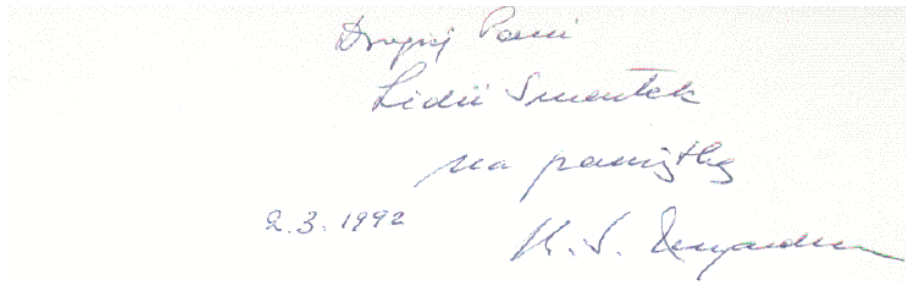 Drogiej Pani
Lidii Smentek
na pamiątkę
2.3.1992